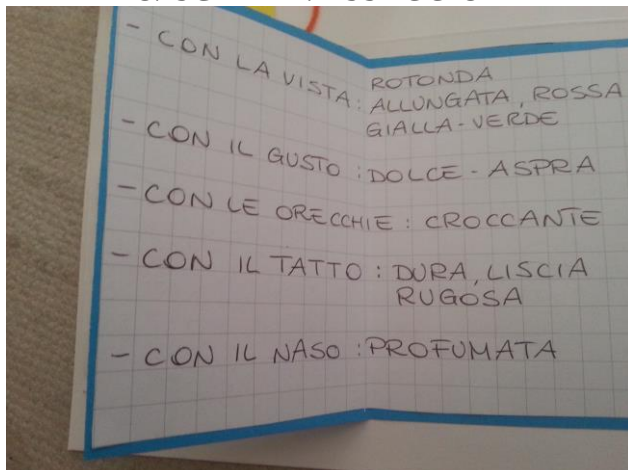 - CON LA VISTA: ROTONDA
ALLUNGATA, ROSSA
GIALLA-VERDE
- CON IL GUSTO: DOLCE - ASPRA
- CON LE ORECCHIE: CROCCANTE
- CON IL TATTO: DURA, LISCIA
RUGOSA
- CON IL NASO: PROFUMATA